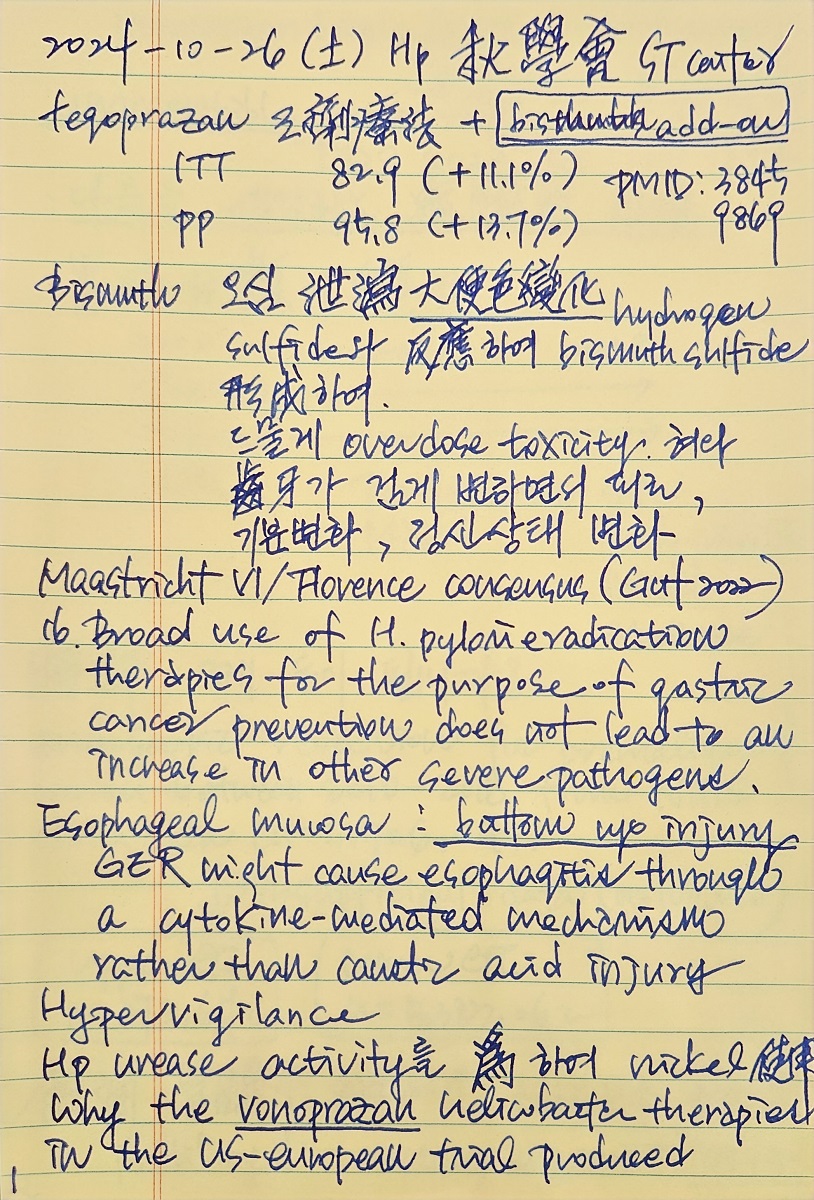 2024-10-26(土) Hp 秋學會 ST center
tegoprazan 三劑療法 + bismuth add-on
ITT 82.9 (+11.1%) PMID: 3845
PP 95.8 (+13.7%) 9869
Bismuth 오심 泄瀉 大便色變化 hydrogen
sulfide와 反應하여 bismuth sulfide
形成하여.
드물게 overdose toxicity. 혀나
齒牙가 검게 변하면서 피로,
기분변화, 정신상태 변화
Maastricht VI/Florence consensus (Gut 2022)
16. Broad use of H. pylori eradication
therapies for the purpose of gastric
cancer prevention does not lead to an
increase in other severe pathogens.
Esophageal mucosa : bottom up injury
GER might cause esophagitis through
a cytokine-mediated mechanism
rather than caustic acid injury
Hypervigilance
Hp urease activity를 爲하여 nickel 使用
Why the vonoprazan helicobacter therapies
in the US-european trial produced
1